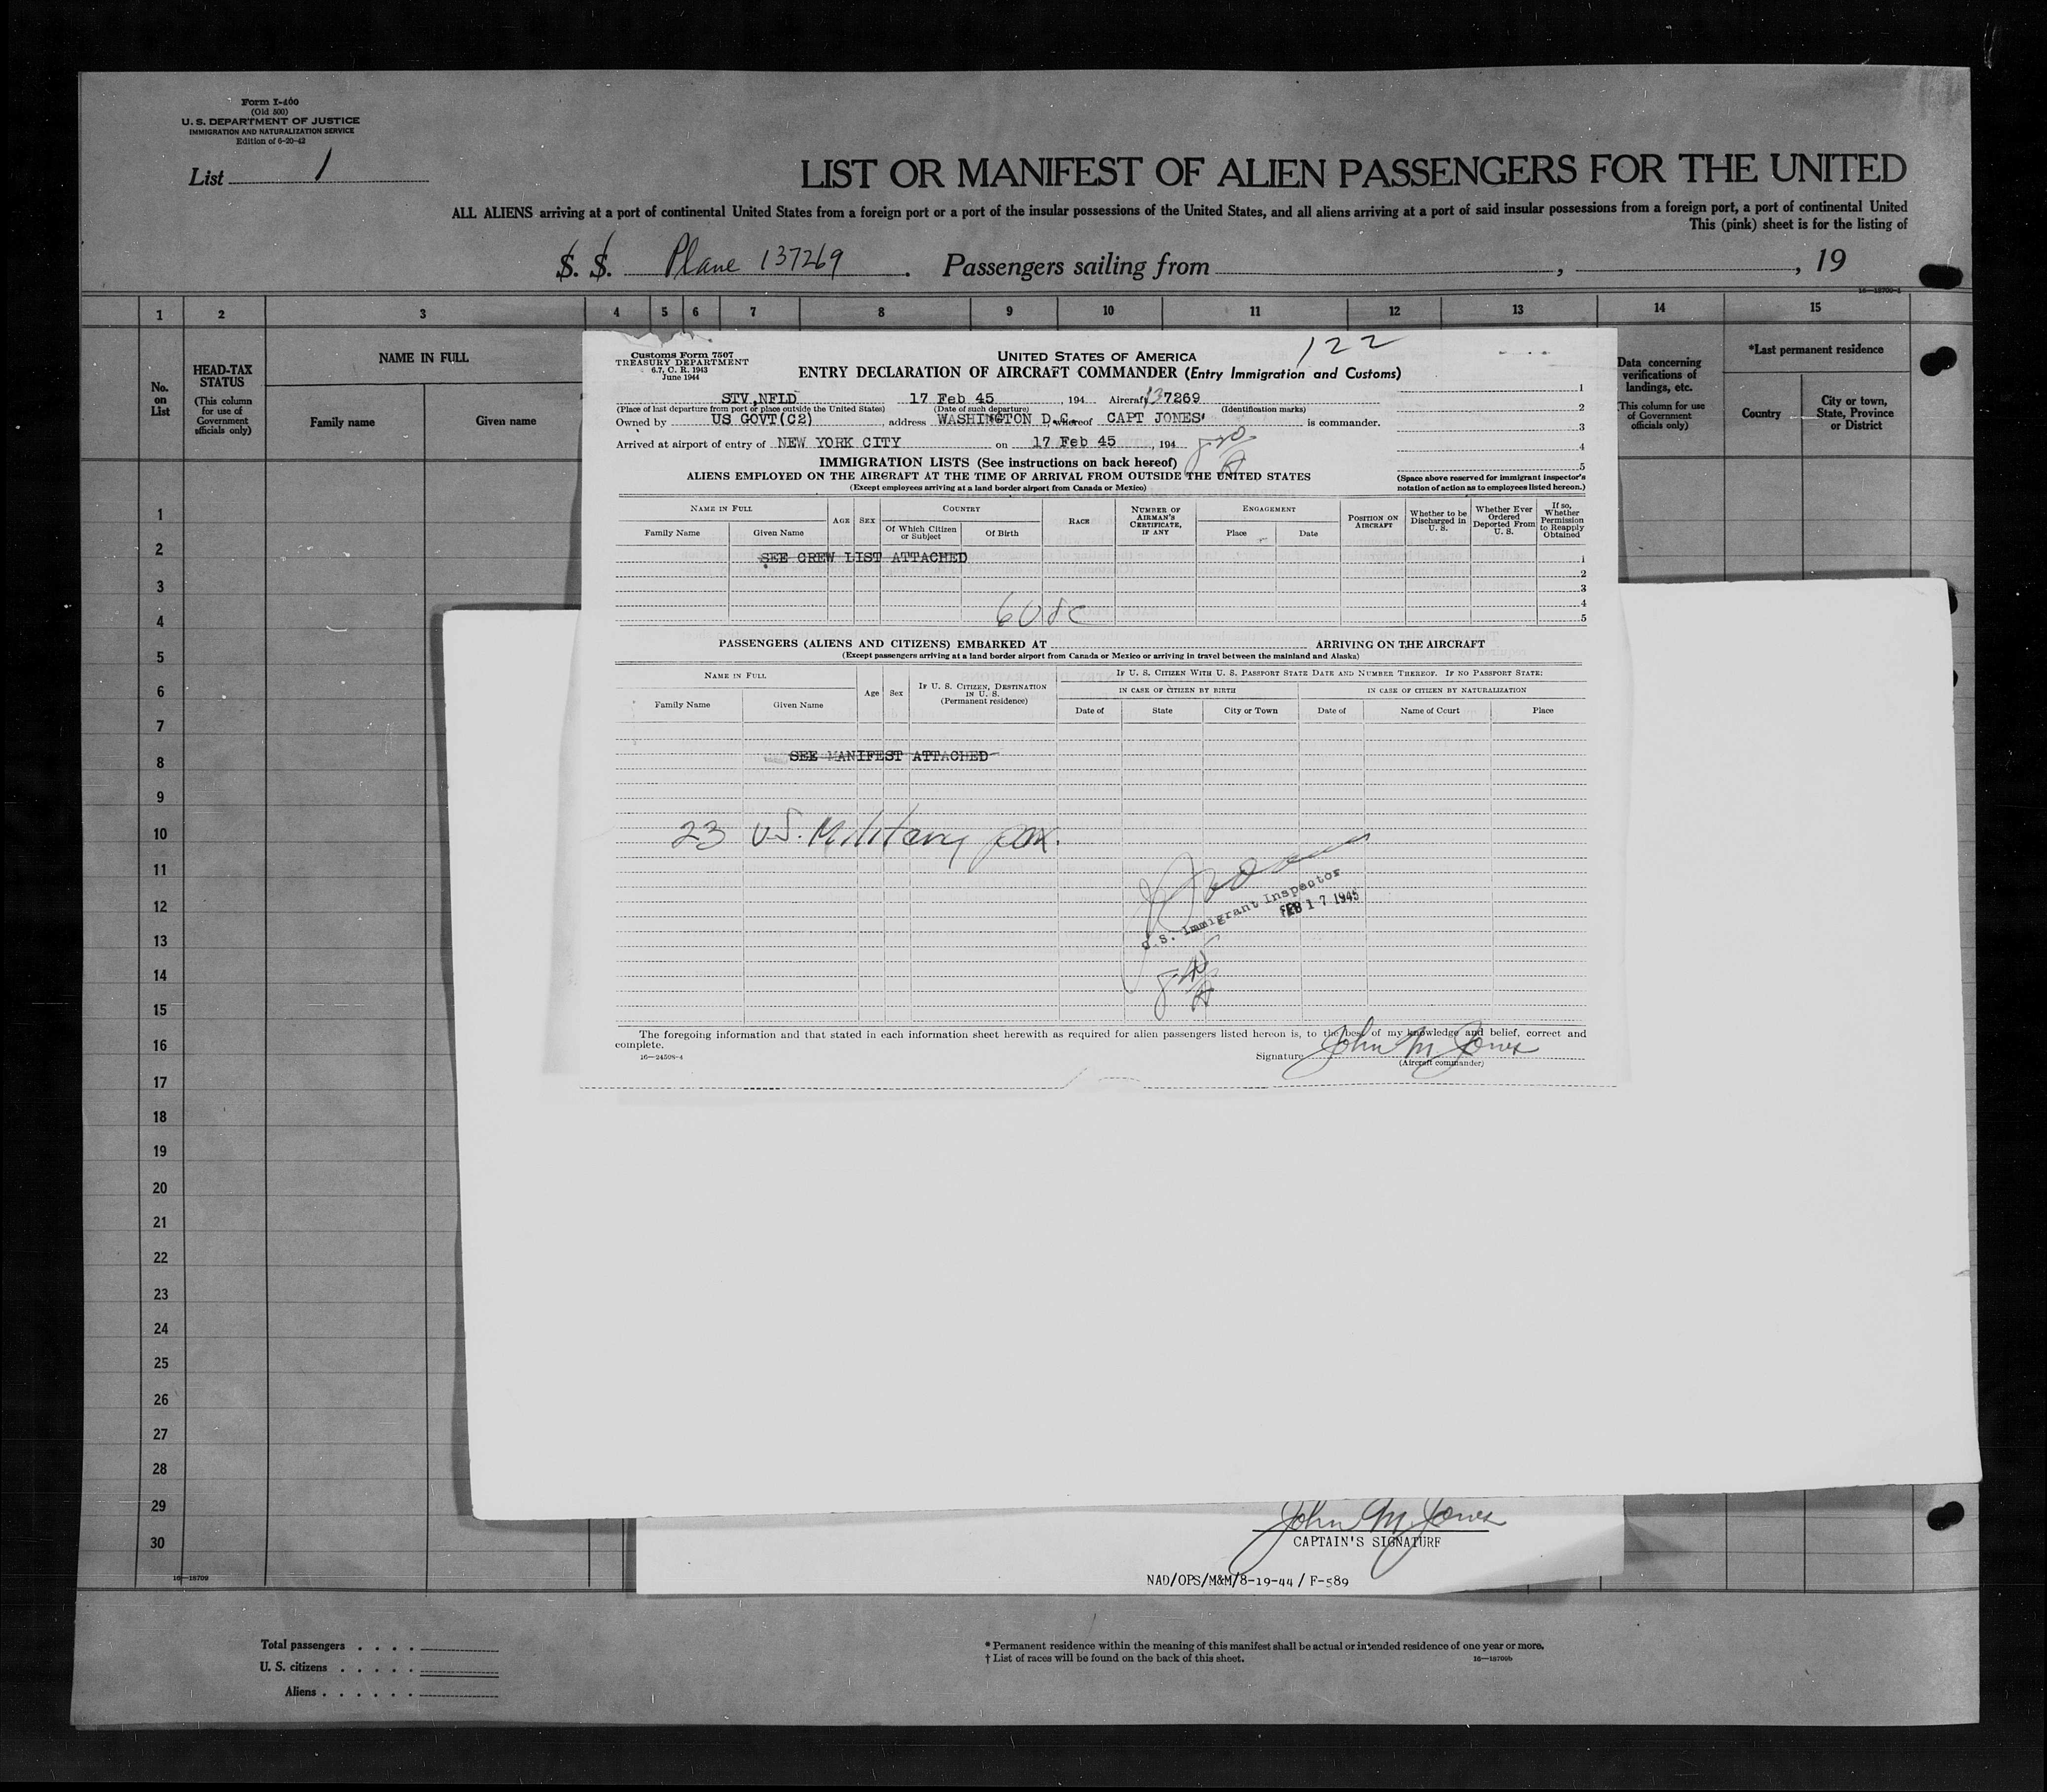 Form I-400
(Old 500)
U. S. DEPARTMENT OF JUSTICE
IMMIGRATION AND NATURALIZATION SERVICE
Edition of 6-20-42
List 1
LIST OR MANIFEST OF ALIEN PASSENGERS FOR THE UNITED
ALL ALIENS arriving at a port of continental United States from a foreign port or a port of the insular possessions of the United States, and all aliens arriving at a port of said insular possessions from a foreign port, a port of continental United
This (pink) sheet is for the listing of
S. S. Plane 137269 . Passengers sailing from , , 19
16—18709-1
1 2 3 4 5 6 7 8 9 10 11 12 13 14 15
No. on List
HEAD-TAX STATUS
(This column for use of Government officials only)
NAME IN FULL
Family name Given name
Data concerning verifications of landings, etc.
(This column for use of Government officials only)
*Last permanent residence
Country
City or town, State, Province or District
Customs Form 7507
TREASURY DEPARTMENT
6.7, C. R. 1943
June 1944
122
UNITED STATES OF AMERICA
ENTRY DECLARATION OF AIRCRAFT COMMANDER (Entry Immigration and Customs)
STV,NFLD 17 Feb 45 , 194 Aircraft 137269
(Place of last departure from port or place outside the United States) (Date of such departure) (Identification marks)
Owned by US GOVT(C2) , address WASHINGTON D.C. whereof CAPT JONES is commander.
Arrived at airport of entry of NEW YORK CITY on 17 Feb 45 , 194
1
2
3
4
5
IMMIGRATION LISTS (See instructions on back hereof)
ALIENS EMPLOYED ON THE AIRCRAFT AT THE TIME OF ARRIVAL FROM OUTSIDE THE UNITED STATES
(Except employees arriving at a land border airport from Canada or Mexico)
(Space above reserved for immigrant inspector's notation of action as to employees listed hereon.)
NAME IN FULL
Family Name Given Name
AGE SEX
COUNTRY
Of Which Citizen or Subject Of Birth
RACE
NUMBER OF AIRMAN'S CERTIFICATE, IF ANY
ENGAGEMENT
Place Date
POSITION ON AIRCRAFT
Whether to be Discharged in U. S.
Whether Ever Ordered Deported From U. S.
If so, Whether Permission to Reapply Obtained
SEE CREW LIST ATTACHED
1
2
3
4
5
PASSENGERS (ALIENS AND CITIZENS) EMBARKED AT ARRIVING ON THE AIRCRAFT
(Except passengers arriving at a land border airport from Canada or Mexico or arriving in travel between the mainland and Alaska)
NAME IN FULL
Family Name Given Name
Age Sex
IF U. S. CITIZEN, DESTINATION IN U. S.
(Permanent residence)
IF U. S. CITIZEN WITH U. S. PASSPORT STATE DATE AND NUMBER THEREOF. IF NO PASSPORT STATE:
IN CASE OF CITIZEN BY BIRTH IN CASE OF CITIZEN BY NATURALIZATION
Date of State City or Town Date of Name of Court Place
SEE MANIFEST ATTACHED
23 U.S. Military pax.
U.S. Immigrant Inspector
FEB 17 1945
The foregoing information and that stated in each information sheet herewith as required for alien passengers listed hereon is, to the best of my knowledge and belief, correct and
complete.
16—24598-4
Signature John M Jones
(Aircraft commander)
1
2
3
4
5
6
7
8
9
10
11
12
13
14
15
16
17
18
19
20
21
22
23
24
25
26
27
28
29
30
16—18709
John M. Jones
CAPTAIN'S SIGNATURE
NAD/OPS/M&M/8-19-44 / F-589
Total passengers . . . .
U. S. citizens . . . . .
Aliens . . . . . .
* Permanent residence within the meaning of this manifest shall be actual or intended residence of one year or more.
† List of races will be found on the back of this sheet.
16—18709b